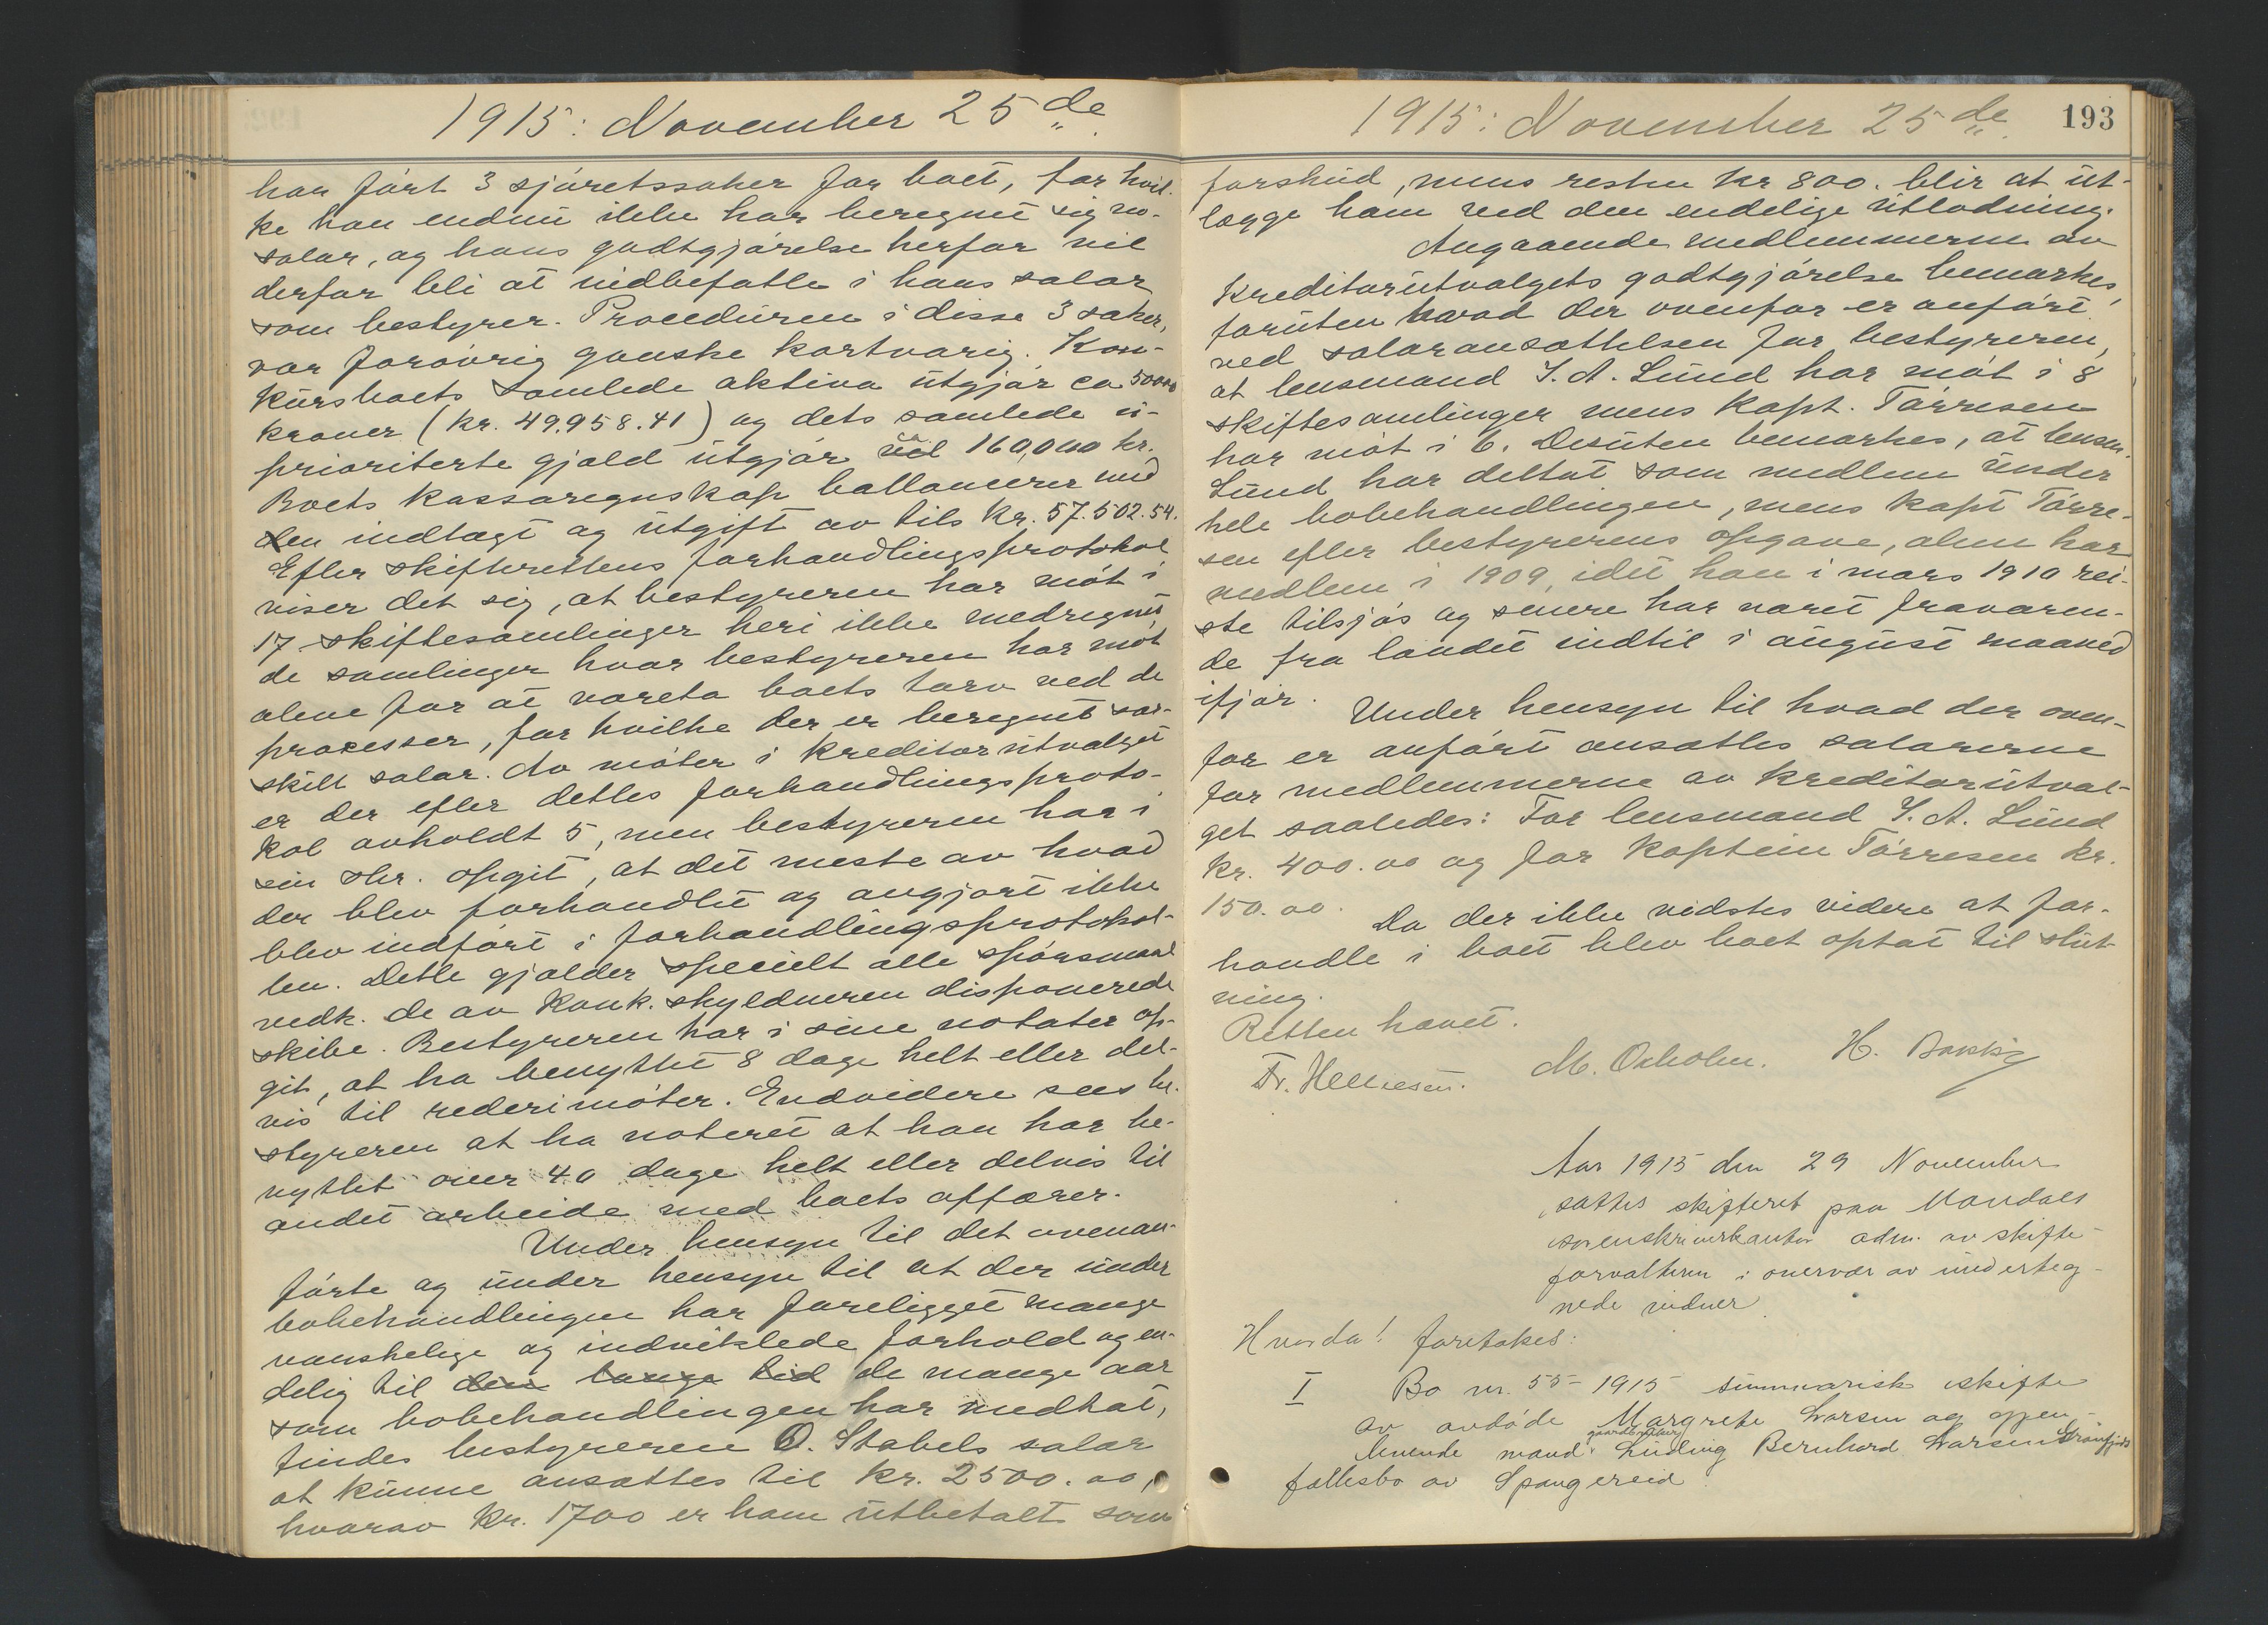 1915: November 25de
har ført 3 sjøretssaker for boet, for hvil-
ke han endnu ikke har beregnet sig no-
salær, og hans godtgjørelse herfor vil
derfor bli at indbefatte i hans salær
som bestyrer. Proceduren i disse 3 saker,
var forøvrig ganske kortvarig. Kon-
kursboets samlede aktiva utgjør ca 50000
kroner (kr. 49.958.41) og dets samlede u-
prioriterte gjæld utgjør ca 160,000 kr.
Boets kassaregnskap ballancerer med
en indtægt og utgift av tils kr. 57.502.54.
Efter skifterettens forhandlingsprotokol
viser det sig, at bestyreren har møt i
17 skiftesamlinger heri ikke medregnet
de samlinger hvor bestyreren har møt
alene for at vareta boets tarv ved de
processer, for hvilke der er beregnet sær-
skilt salær. Av møter i kreditorutvalget
er der efter dettes forhandlingsproto-
kol avholdt 5, men bestyreren har i
sin skr. opgit, at det meste av hvad
der blev forhandlet og avgjort ikke
blev indført i forhandlingsprotokol-
len. Dette gjælder specielt alle spørsmaal
vedk. de av konk. skyldneren disponerede
skibe. Bestyreren har i sine notater op-
git, at ha benyttet 8 dage helt eller del-
vis til rederimøter. Endvidere sees be-
styreren at ha noteret at han har be-
nyttet over 40 dage helt eller delvis til
andet arbeide med boets affærer.
Under hensyn til det ovenan-
førte og under hensyn til at der under
bobehandlingen har foreligget mange
vanskelige og indviklede forhold og en-
delig til den lange tid de mange aar
som bobehandlingen har medtat,
findes bestyreren O. Stabels salær
at kunne ansættes til kr. 2500.00,
hvorav kr. 1700 er ham utbetalt som
1915: November 25de
193
forskud, mens resten kr 800. blir at ut-
lægge ham ved den endelige utlodning.
Angaaende medlemmerne av
kreditorutvalgets godtgjørelse bemærkes,
foruten hvad der ovenfor er anført
ved salæransættelsen for bestyreren,
at lensmand T. A. Lund har møt i 8
skiftesamlinger mens kapt. Tørresen
har møt i 6. Desuten bemærkes, at lensm.
Lund har deltat som medlem under
hele bobehandlingen, mens kapt Tørre-
sen efter bestyrerens opgave, alene har
medlem i 1909, idet han i mars 1910 rei-
ste tilsjøs og senere har været fraværen-
de fra landet indtil i august maaned
ifjor.
Under hensyn til hvad der oven-
for er anført ansættes salærerne
for medlemmerne av kreditorutval-
get saaledes: For lensmand T. A. Lund
kr. 400.00 og for kaptein Tørresen kr.
150.00.
Da der ikke vidstes videre at for-
handle i boet blev boet optat til slut-
ning.
Retten hævet.
Fr. Helliesen. M. Oxholm. H. Bakke
Aar 1915 den 29 November
sattes skifteret paa Mandals
sorenskriverkontor adm. av skifte-
forvalteren i overvær av underteg-
nede vidner
Hvorda! foretokes:
I Bo nr. 55-1915 summarisk skifte
av avdøde Margrete Larsen og gjen-
levende mand gaardbruker Luding Bernhard Larsen Grønfjords
fællesbo av Spangereid